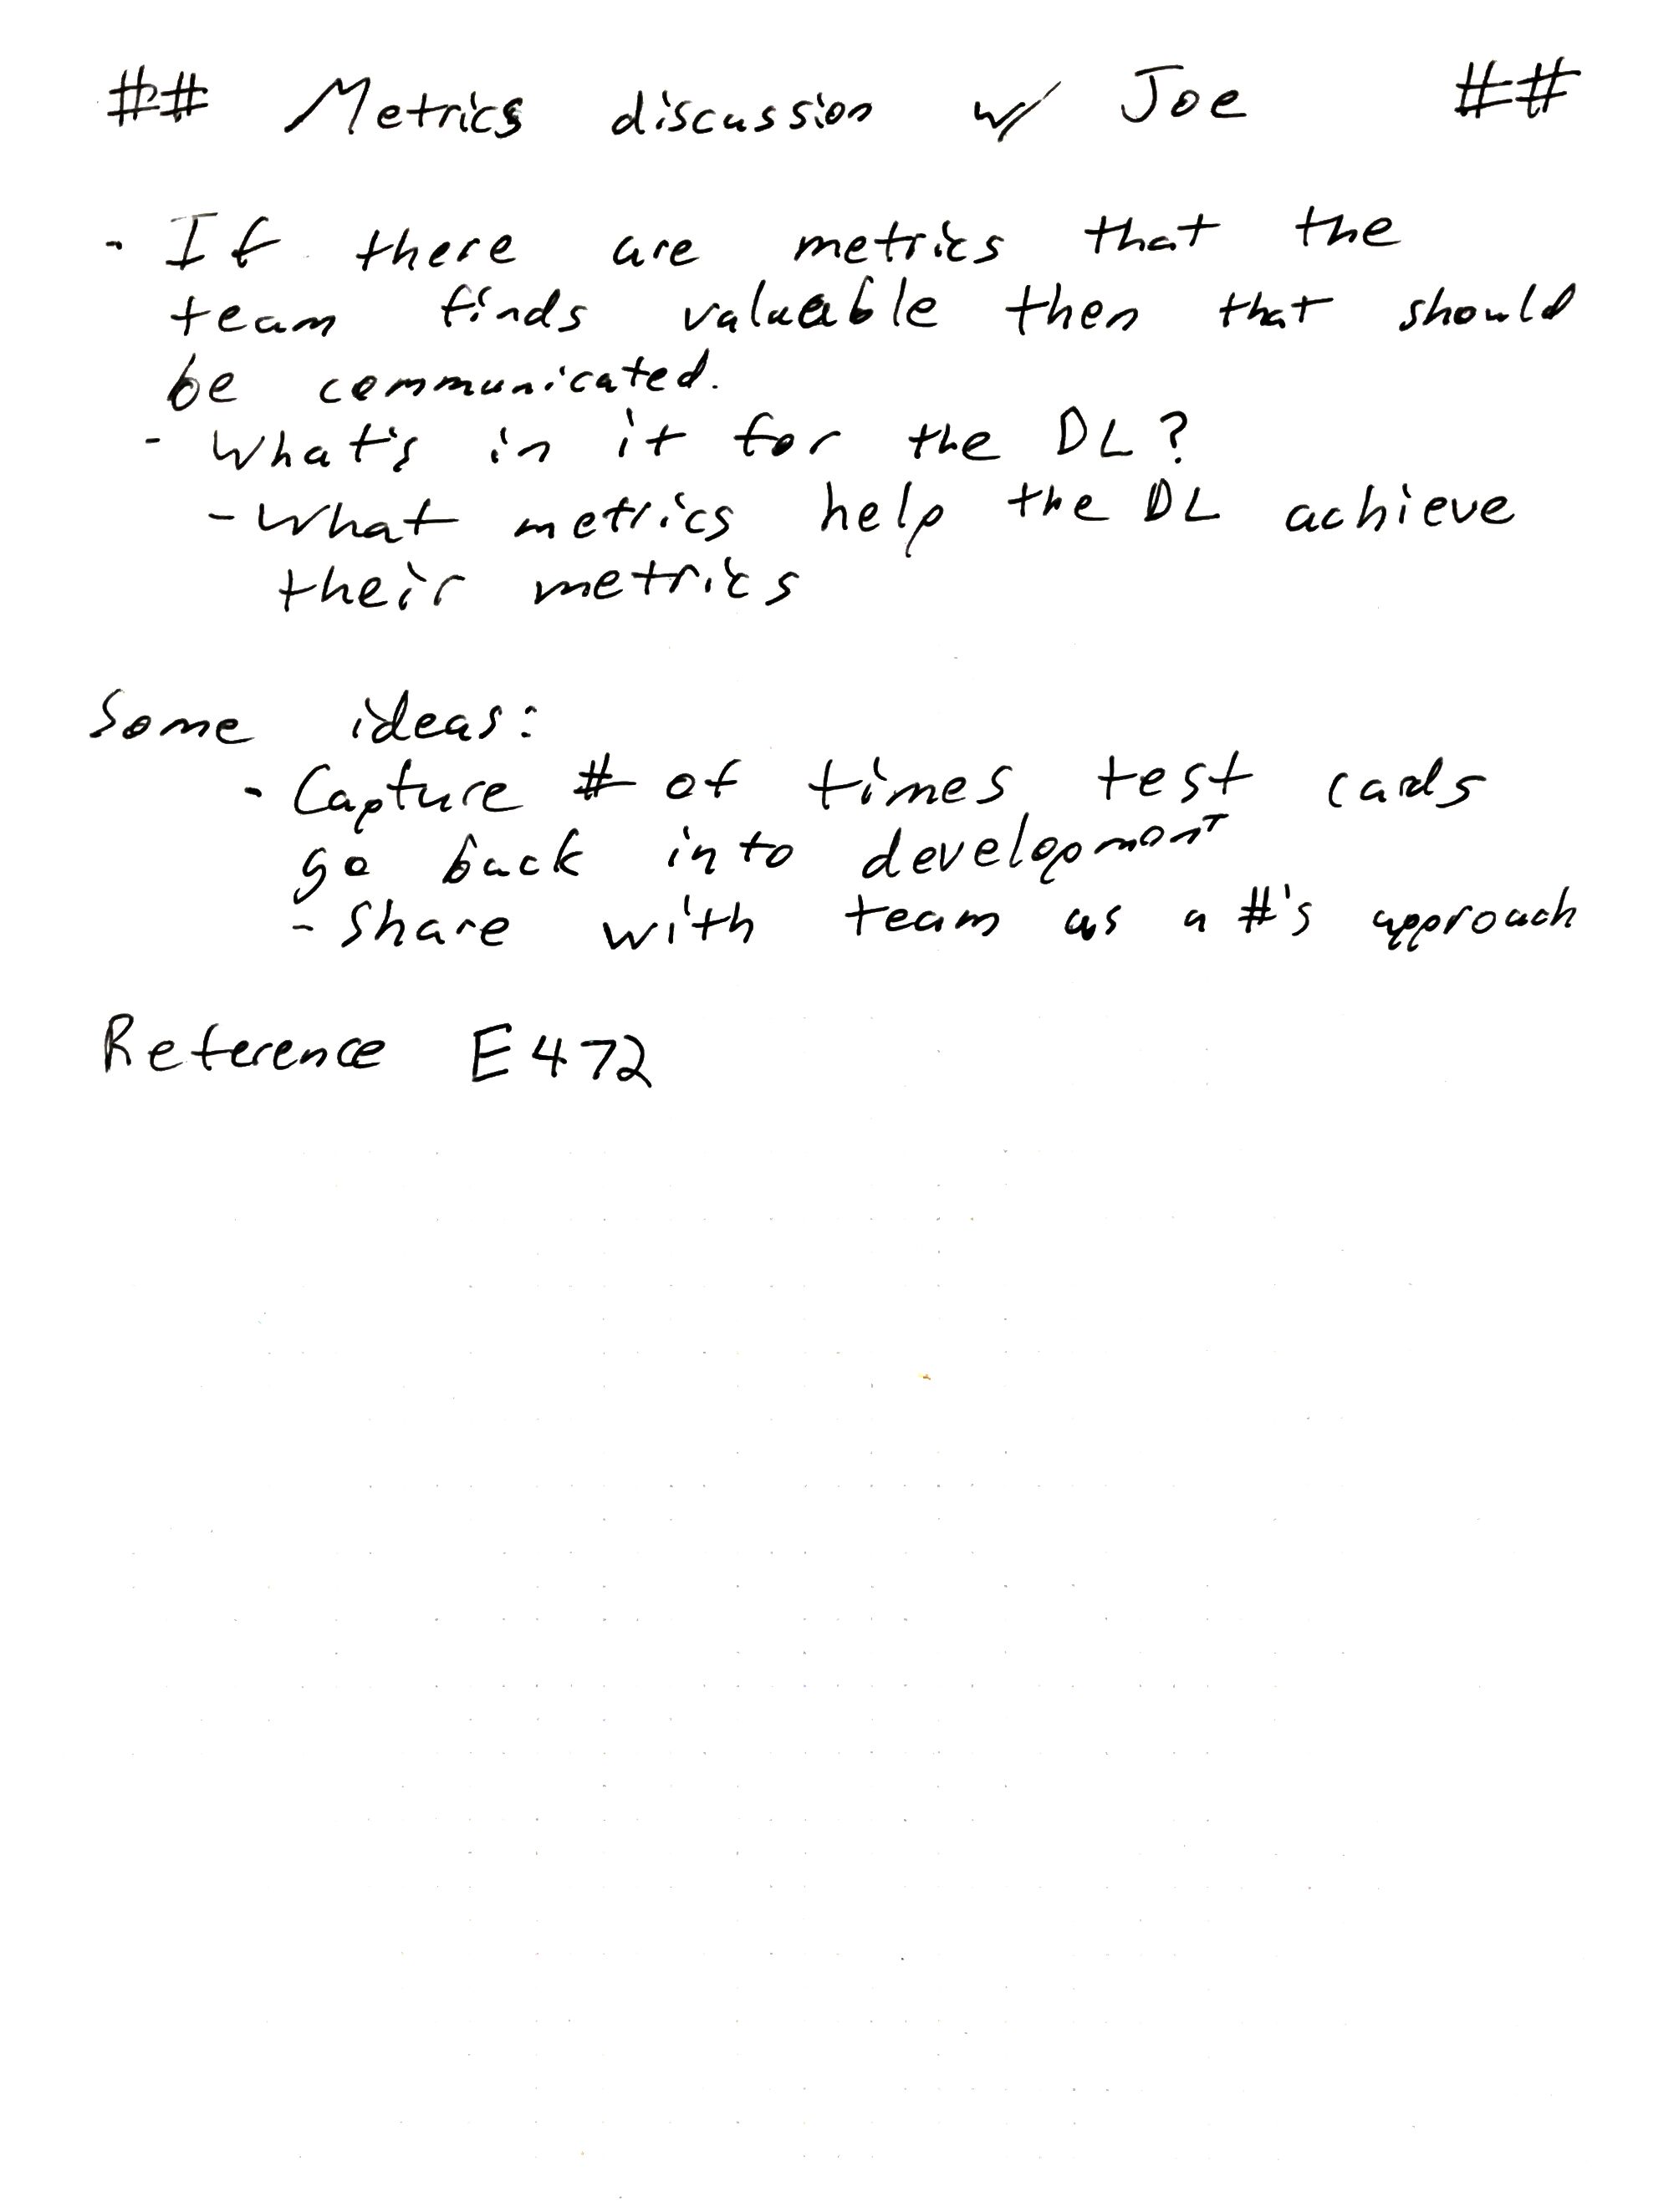 ## Metrics discussion w/ Joe ##
- If there are metrics that the
team finds valuable then that should
be communicated.
- What's in it for the DL?
- What metrics help the DL achieve
their metrics
Some ideas:
- Capture # of times test cards
go back into development
- Share with team as a #'s approach
Reference E472